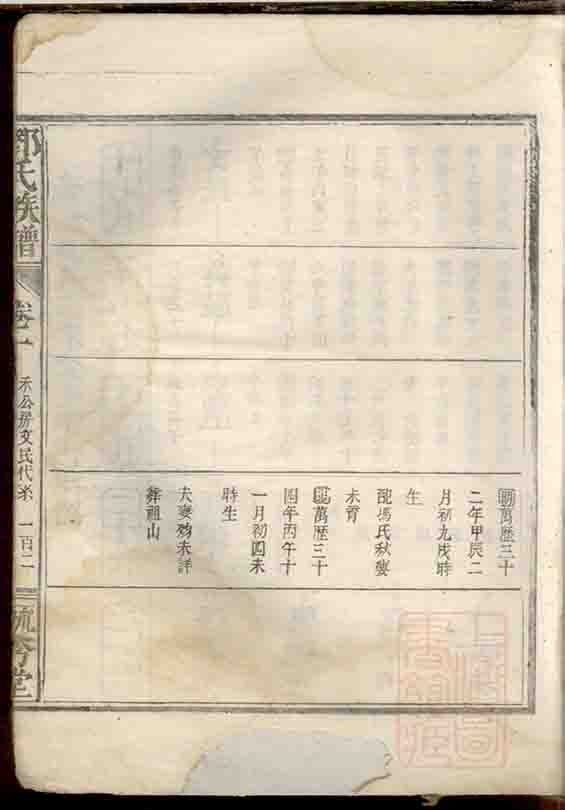 明萬歷三十
二年甲辰二
月初九戌時
生
配馮氏秋嬰
未育
明萬歷三十
四年丙午十
一月初四未
時生
夫妻歿未詳
葬祖山
鄧氏族譜
卷一
公房文民代系
一百二